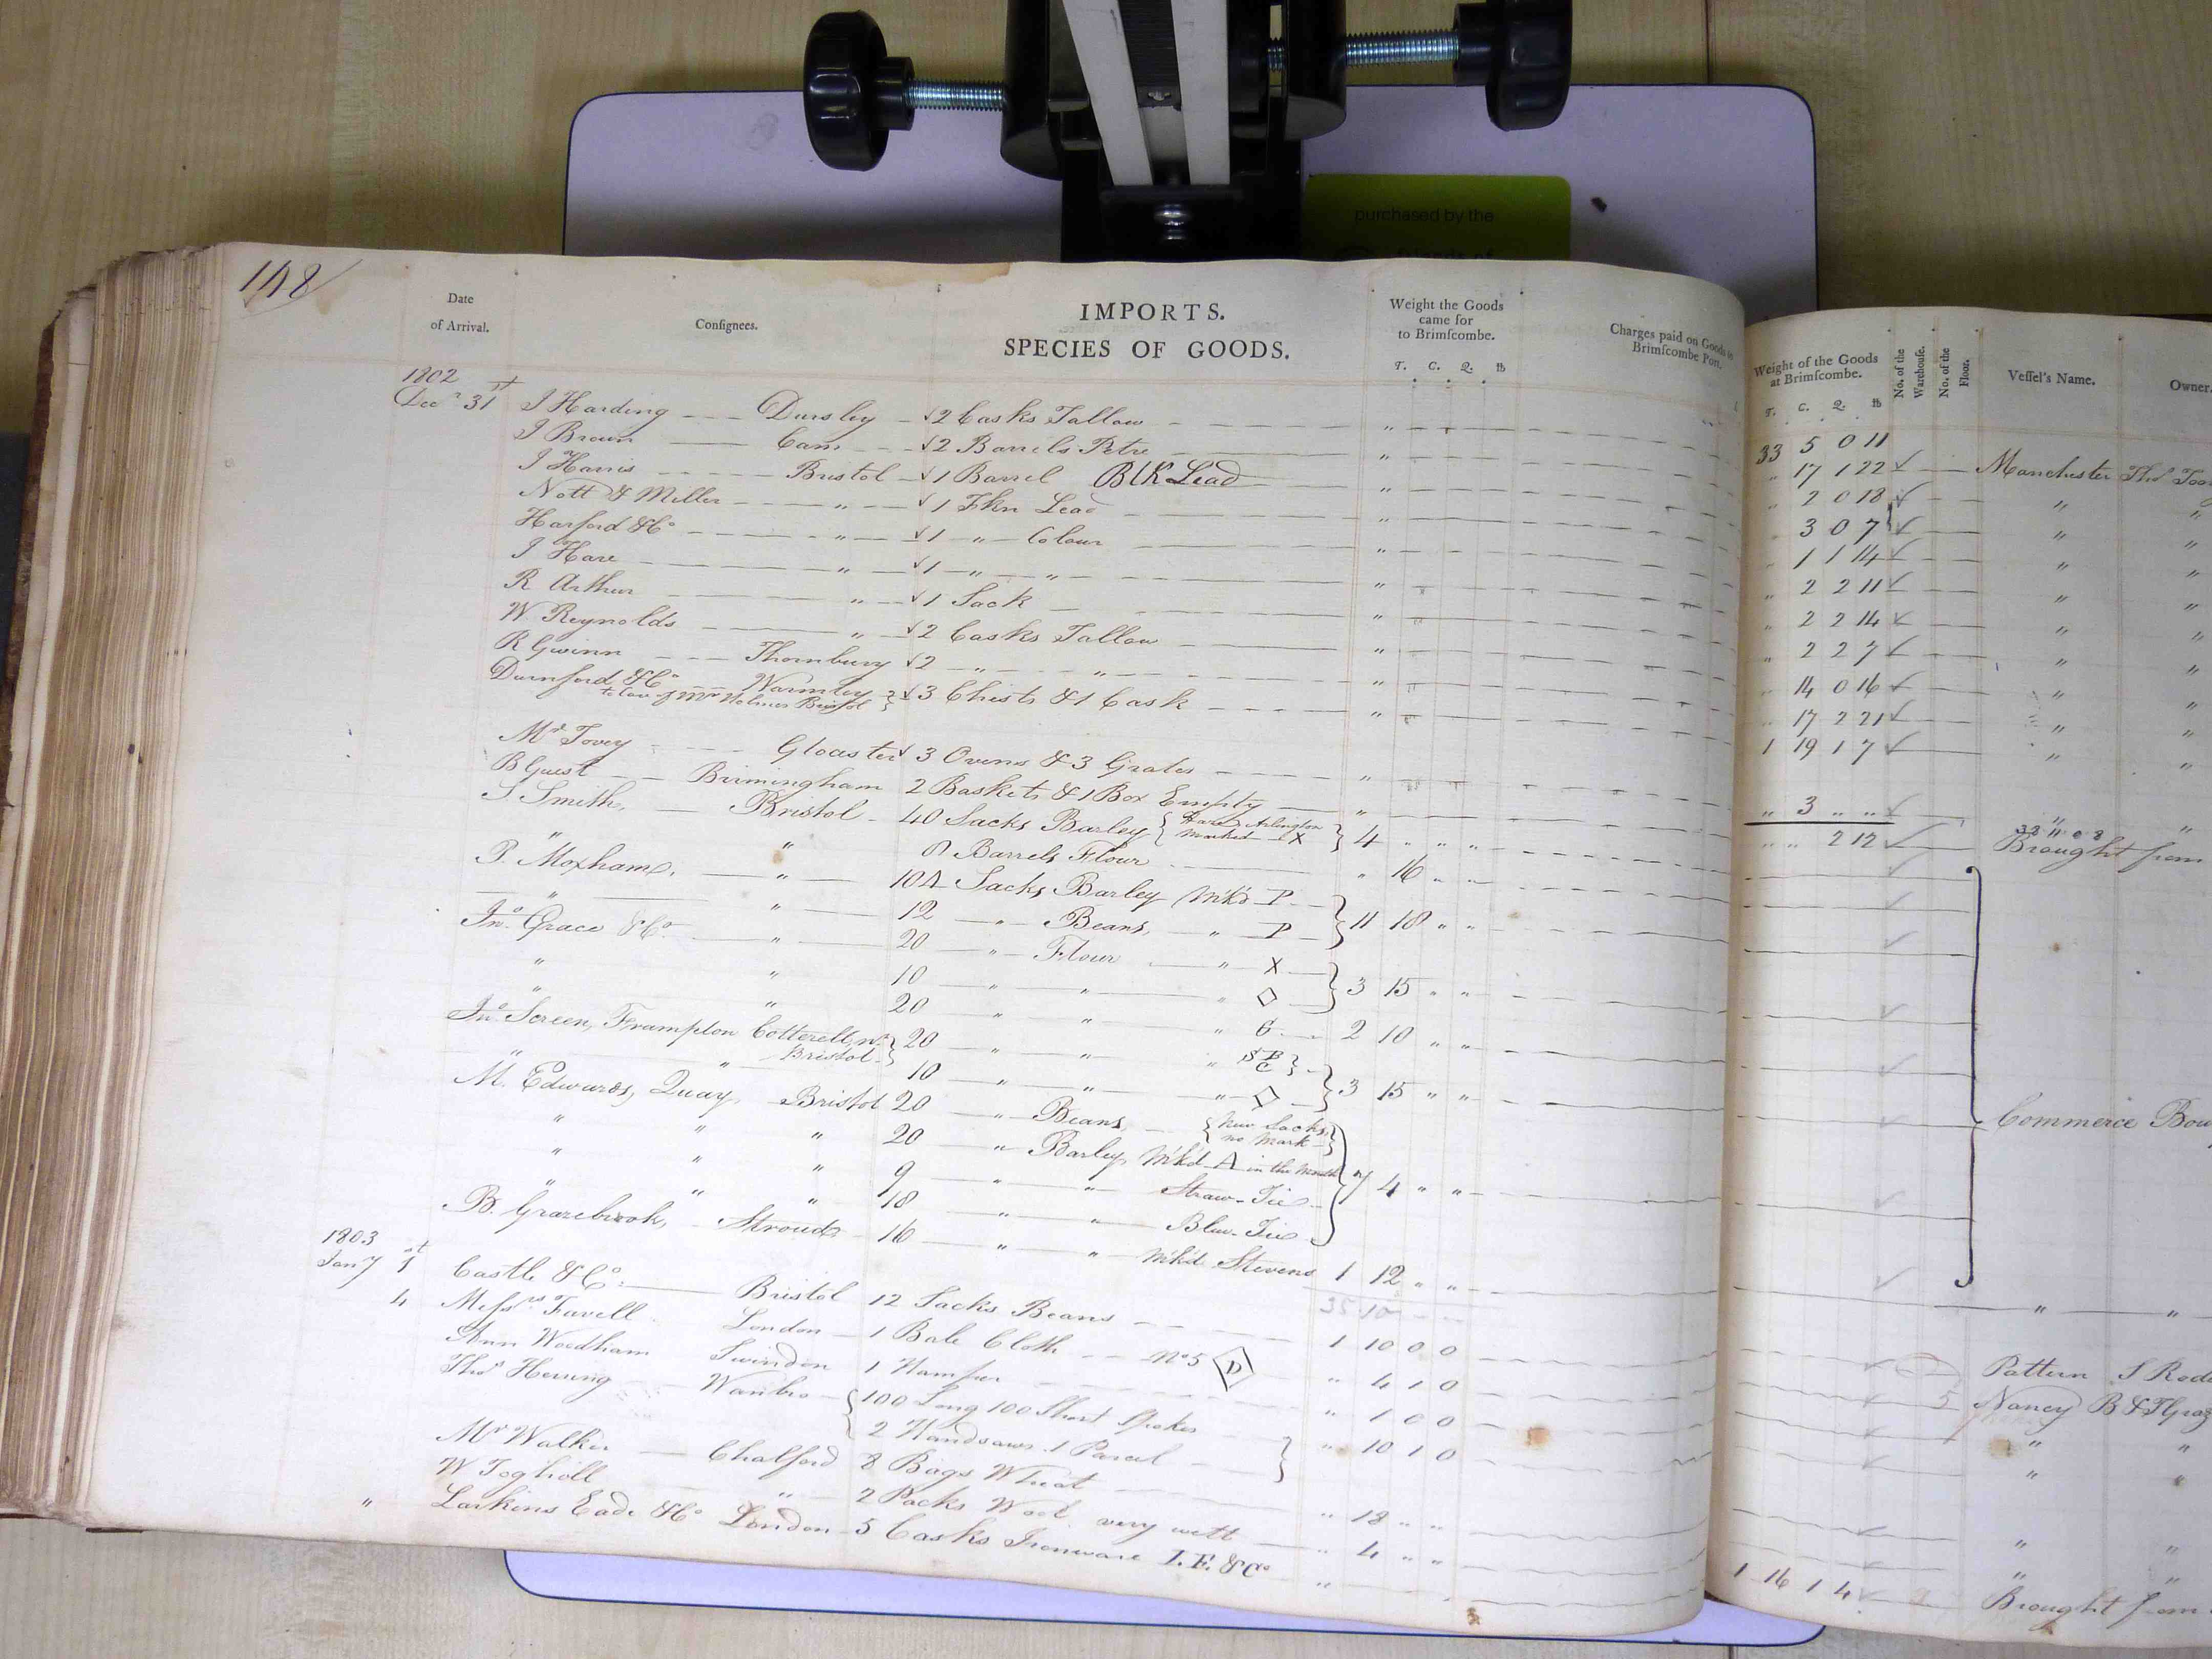 purchased by the
148
Date
of Arrival.
Conſignees.
IMPORTS.
SPECIES OF GOODS.
Weight the Goods
came for
to Brimſcombe.
T. C. Q. lb
Charges paid on Goods to
Brimſcombe Port.
Weight of the Goods
at Brimſcombe.
T. C. Q. lb
No. of the
Warehouſe.
No. of the
Floor.
Veſſel's Name.
Owner
1802
Decr 31st J Harding Dursley 2 Casks Tallow
J Brown Cam 2 Barrels Petre
J Harris Bristol 1 Barrel Blk Lead
Nott & Miller " 1 Fkn Lead
Harford & Co " 1 " Colour
J Hare " 1 " "
R Arthur " 1 Sack
W. Reynolds " 2 Casks Tallow
R Gwinn Thornbury 2 " "
Durnford & Co Warmley 3 Chests & 1 Cask
to care of Mr Holmes Bristol
Mr Tovey Glocester 3 Ovens & 3 Grates
B Guest Birmingham 2 Baskets & 1 Box Empty
S Smith, Bristol 40 Sacks Barley marked X 4 " " "
" " 8 Barrels Flour " 16 " "
P. Moxham, " 104 Sacks Barley Mk'd P
" " 12 " Beans, " P 11 18 " "
Jno. Grace & Co. " 20 " Flour " X
" " 10 " " " ◇ 3 15 " "
" " 20 " " " G 2 10 " "
Jno. Screen, Frampton Cotterell, nr. 20 " " "
Bristol
" " 10 " " " ◇ 3 15 " "
M. Edwards, Quay, Bristol 20 " Beans, New Sacks,
no Mark
" " " 20 " Barley, Mk'd A in the Mouth
" " " 9 " " Straw-Tie 7 4 " "
" " " 18 " " Blue-Tie
B. Grazebrook, Stroud 16 " " Mk'd Stevens 1 12 " "
35 10
1803
Jany 1st Castle & Co. Bristol 12 Sacks Beans 1 10 0 0
4 Messrs Favell London 1 Bale Cloth No 5 D " 4 1 0
Ann Woodham Swindon 1 Hamper " 1 0 0
Thos Herring Wanbro 100 Long 100 Short Spokes " 10 1 0
2 Handsaws 1 Parcel
Mr Walker Chalford 8 Bags Wheat " 18 " "
W Toghill " 2 Packs Wool very wett " 4 " "
" Larkins Eade & Co London 5 Casks Ironware I.E. & Co "
33 5 0 11
" 17 1 22 Manchester Thos
" 2 0 18 " "
3 0 7 " "
1 1 14 " "
" 2 2 11 " "
" 2 2 14 " "
" 2 2 7 " "
14 0 16 " "
17 2 21 " "
1 19 1 7 " "
" 3 " " " "
38 11 0 8
" " 2 12 Brought from
Commerce
" "
Pattern
5 Nancy
" "
" "
" "
" "
1 16 1 4 Brought from